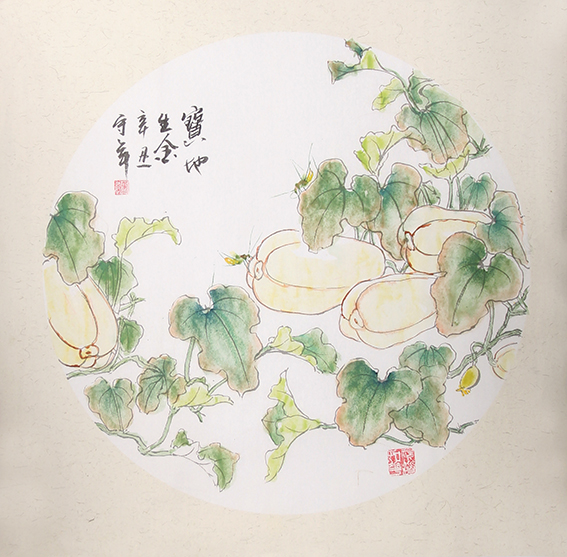 寶地
生金
辛丑
守